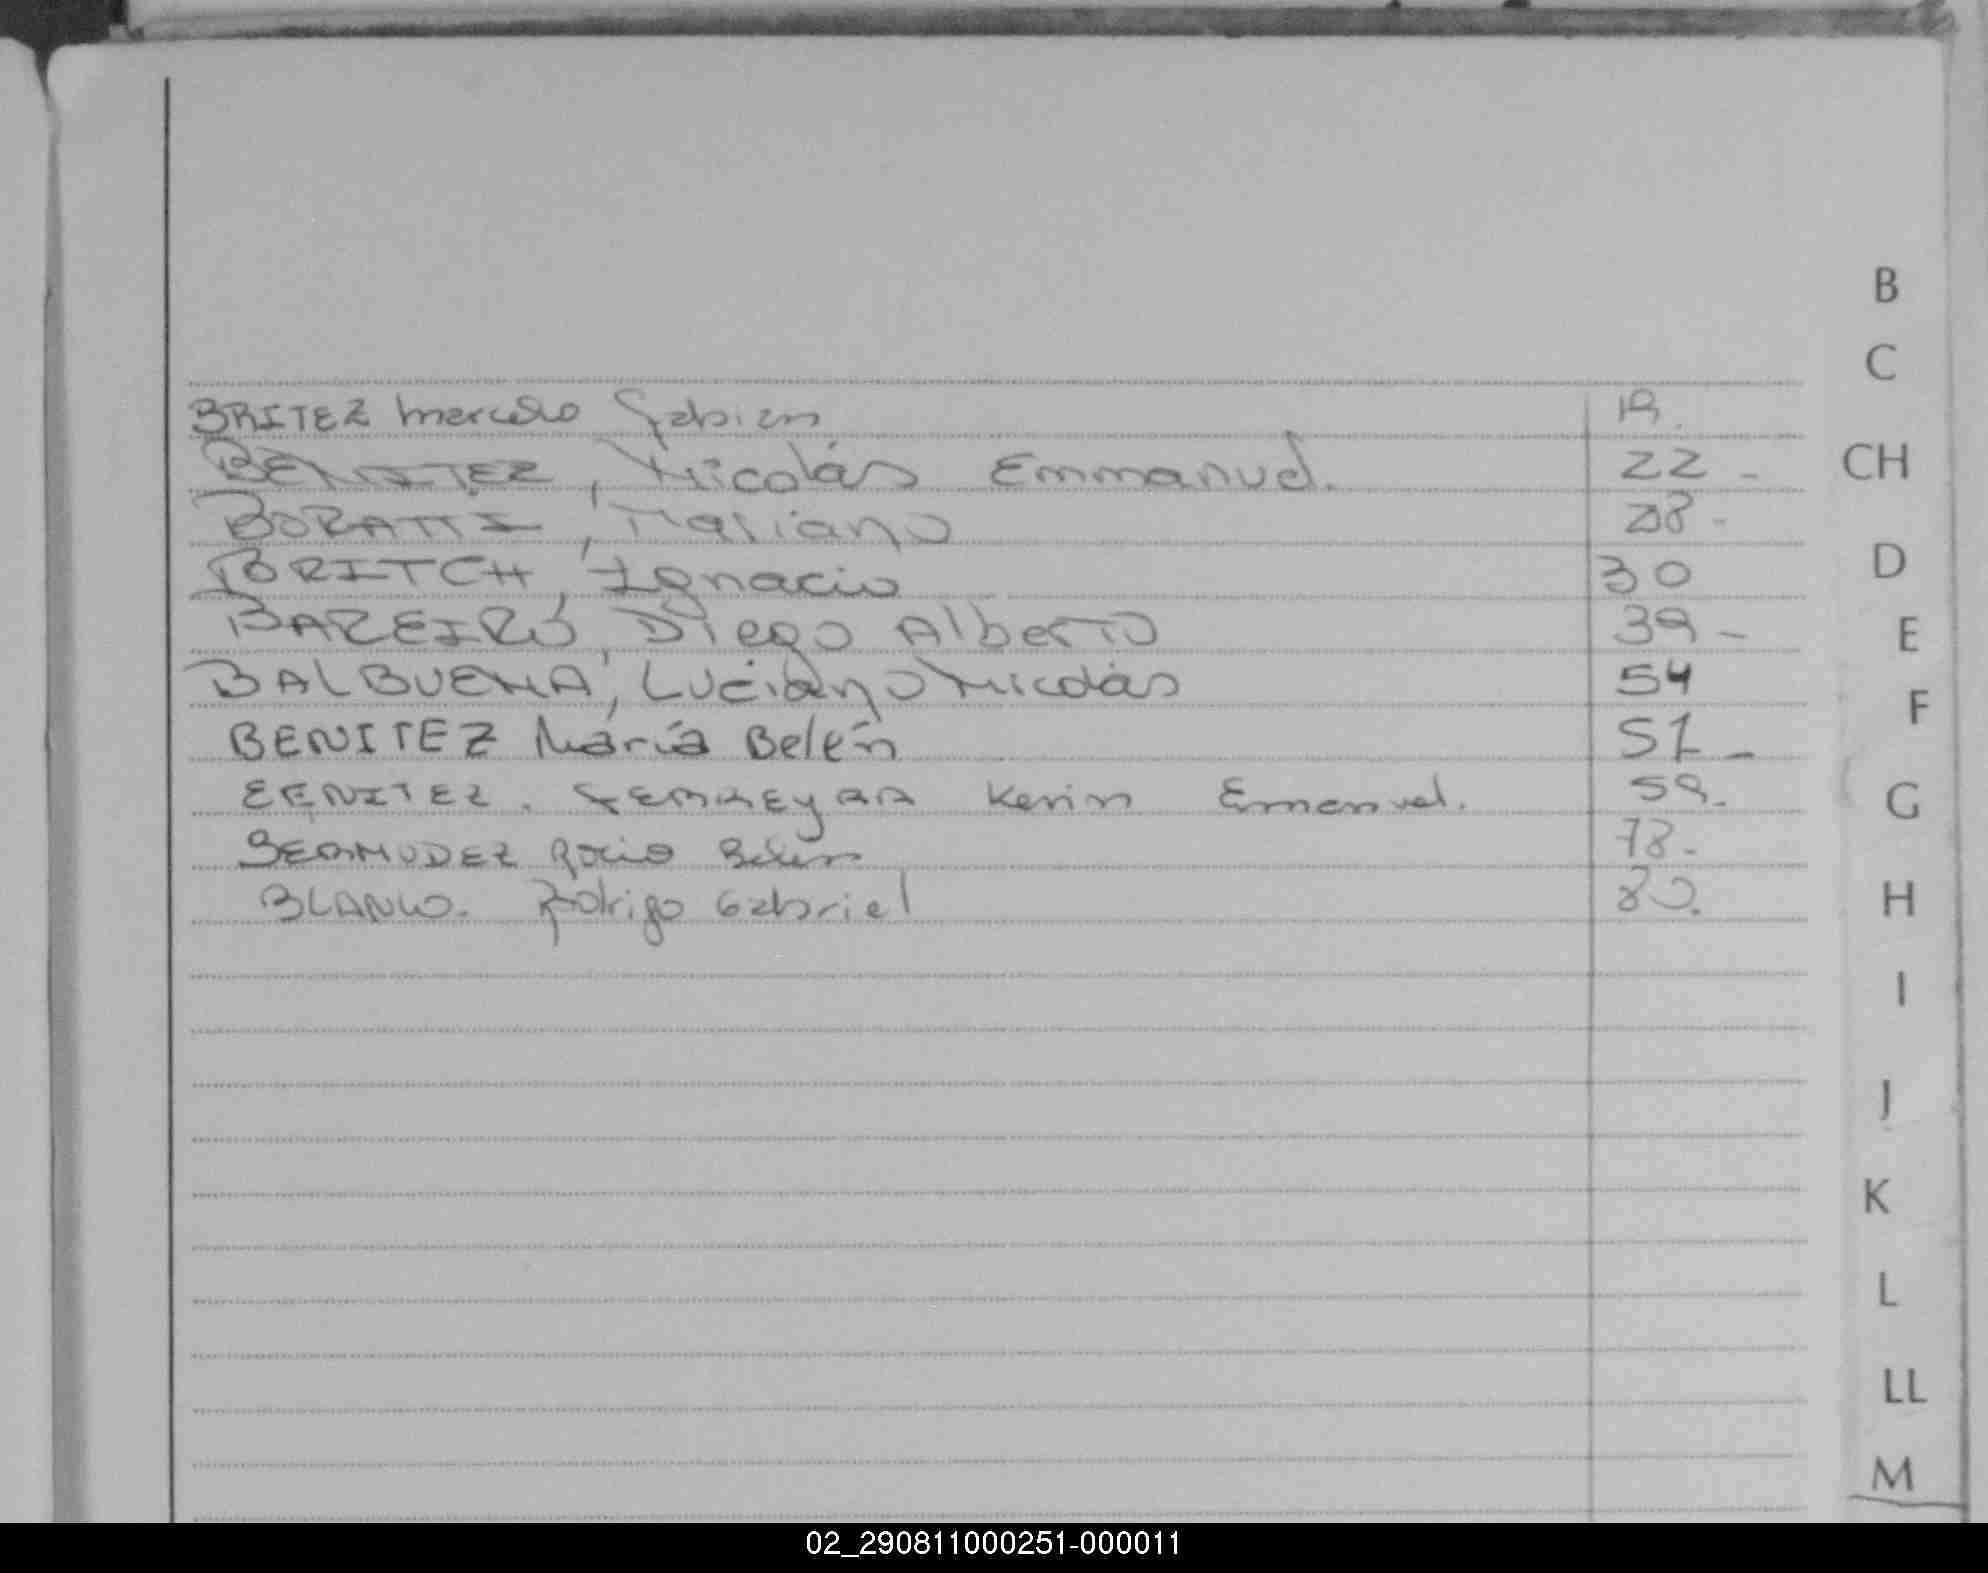 BRITEZ Marcelo Fabian 19.
BENITEZ, Nicolás Emmanuel. 22-
BORATTI, Mariano 28-
BRITCH, Ignacio 30
BAREIRO, Diego Alberto 39-
BALBUENA, Luciano Nicolás 54
BENITEZ María Belén 57-
BENITEZ. FERREYRA Kevin Emanuel. 59.
BERMUDEZ Rocio Belen 78-
BLANCO. Rodrigo Gabriel 80.
B
C
CH
D
E
F
G
H
I
J
K
L
LL
M
02_290811000251-000011